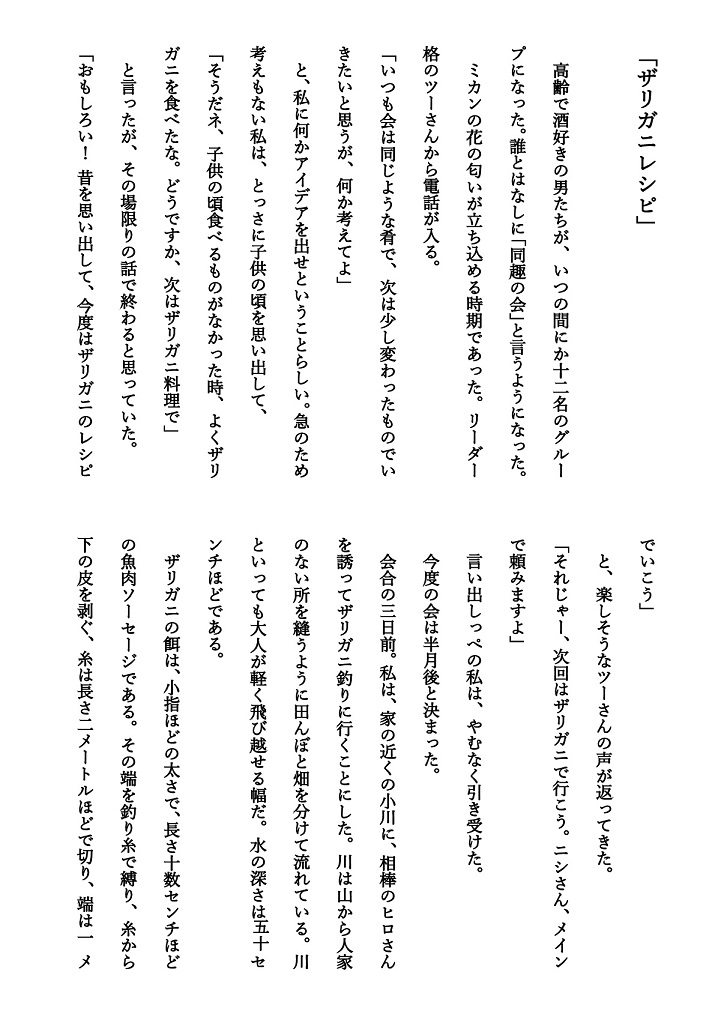 「ザリガニレシピ」
　高齢で酒好きの男たちが、いつの間にか十二名のグルー
プになった。誰とはなしに「同趣の会」と言うようになった。
　ミカンの花の匂いが立ち込める時期であった。リーダー
格のツーさんから電話が入る。
「いつも会は同じような肴で、次は少し変わったものでい
きたいと思うが、何か考えてよ」
　と、私に何かアイデアを出せということらしい。急のため
考えもない私は、とっさに子供の頃を思い出して、
「そうだネ、子供の頃食べるものがなかった時、よくザリ
ガニを食べたな。どうですか、次はザリガニ料理で」
　と言ったが、その場限りの話で終わると思っていた。
「おもしろい！昔を思い出して、今度はザリガニのレシピ
でいこう」
　と、楽しそうなツーさんの声が返ってきた。
「それじゃー、次回はザリガニで行こう。ニシさん、メイン
で頼みますよ」
　言い出しっぺの私は、やむなく引き受けた。
　今度の会は半月後と決まった。
　会合の三日前。私は、家の近くの小川に、相棒のヒロさん
を誘ってザリガニ釣りに行くことにした。川は山から人家
のない所を縫うように田んぼと畑を分けて流れている。川
といっても大人が軽く飛び越せる幅だ。水の深さは五十セ
ンチほどである。
　ザリガニの餌は、小指ほどの太さで、長さ十数センチほど
の魚肉ソーセージである。その端を釣り糸で縛り、糸から
下の皮を剥ぐ、糸は長さ二メートルほどで切り、端は一メ